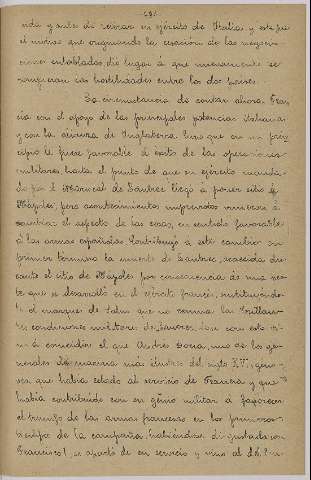 rida y antes de retirar su ejército de Italia y este fué
el motivo que originando la cesación de las negocia-
ciones entabladas, dió lugar á que nuevamente se
rompieran las hostilidades entre los dos paises.
La circunstancia de contar ahora Fran-
cia con el apoyo de las principales potencias italianas
y con la alianza de Inglaterra hizo que en un prin-
cipio le fuese favorable el éxito de las operaciones
militares hasta el punto de que su ejército manda-
do por el Mariscal de Lautrec llegó á poner sitio á
Nápoles; pero acontecimientos imprevistos vinieron á
cambiar el aspecto de las cosas, en sentido favorable
á las armas españolas. Contribuyó á este cambio en
primer término la muerte de Lautrec, acaecida du-
rante el sitio de Nápoles por consecuencia de una pes-
te que se desarrolló en el ejército francés, sustituyéndo-
le el marques de Saluzo que no reunia las brillan-
tes condiciones militares de Lautrec. Con esto vi-
no á coincidir el que Andrés Doria, uno de los ge-
nerales de marina más ilustres del siglo XVI, geno-
vés, que habia estado al servicio de Francia y que
habia contribuido con su génio militar á favorecer
el triunfo de las armas francesas en los primeros
tiempos de la campaña habiéndose disgustado con
Francisco I, se apartó de su servicio y vino al de